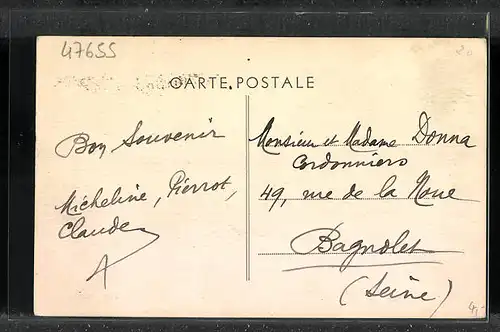 47655
CARTE POSTALE
Bon Souvenir
Micheline, Pierrot,
Claude
Monsieur et Madame Donna
Cordonniers
49, rue de la Noue
Bagnolet
(Seine)